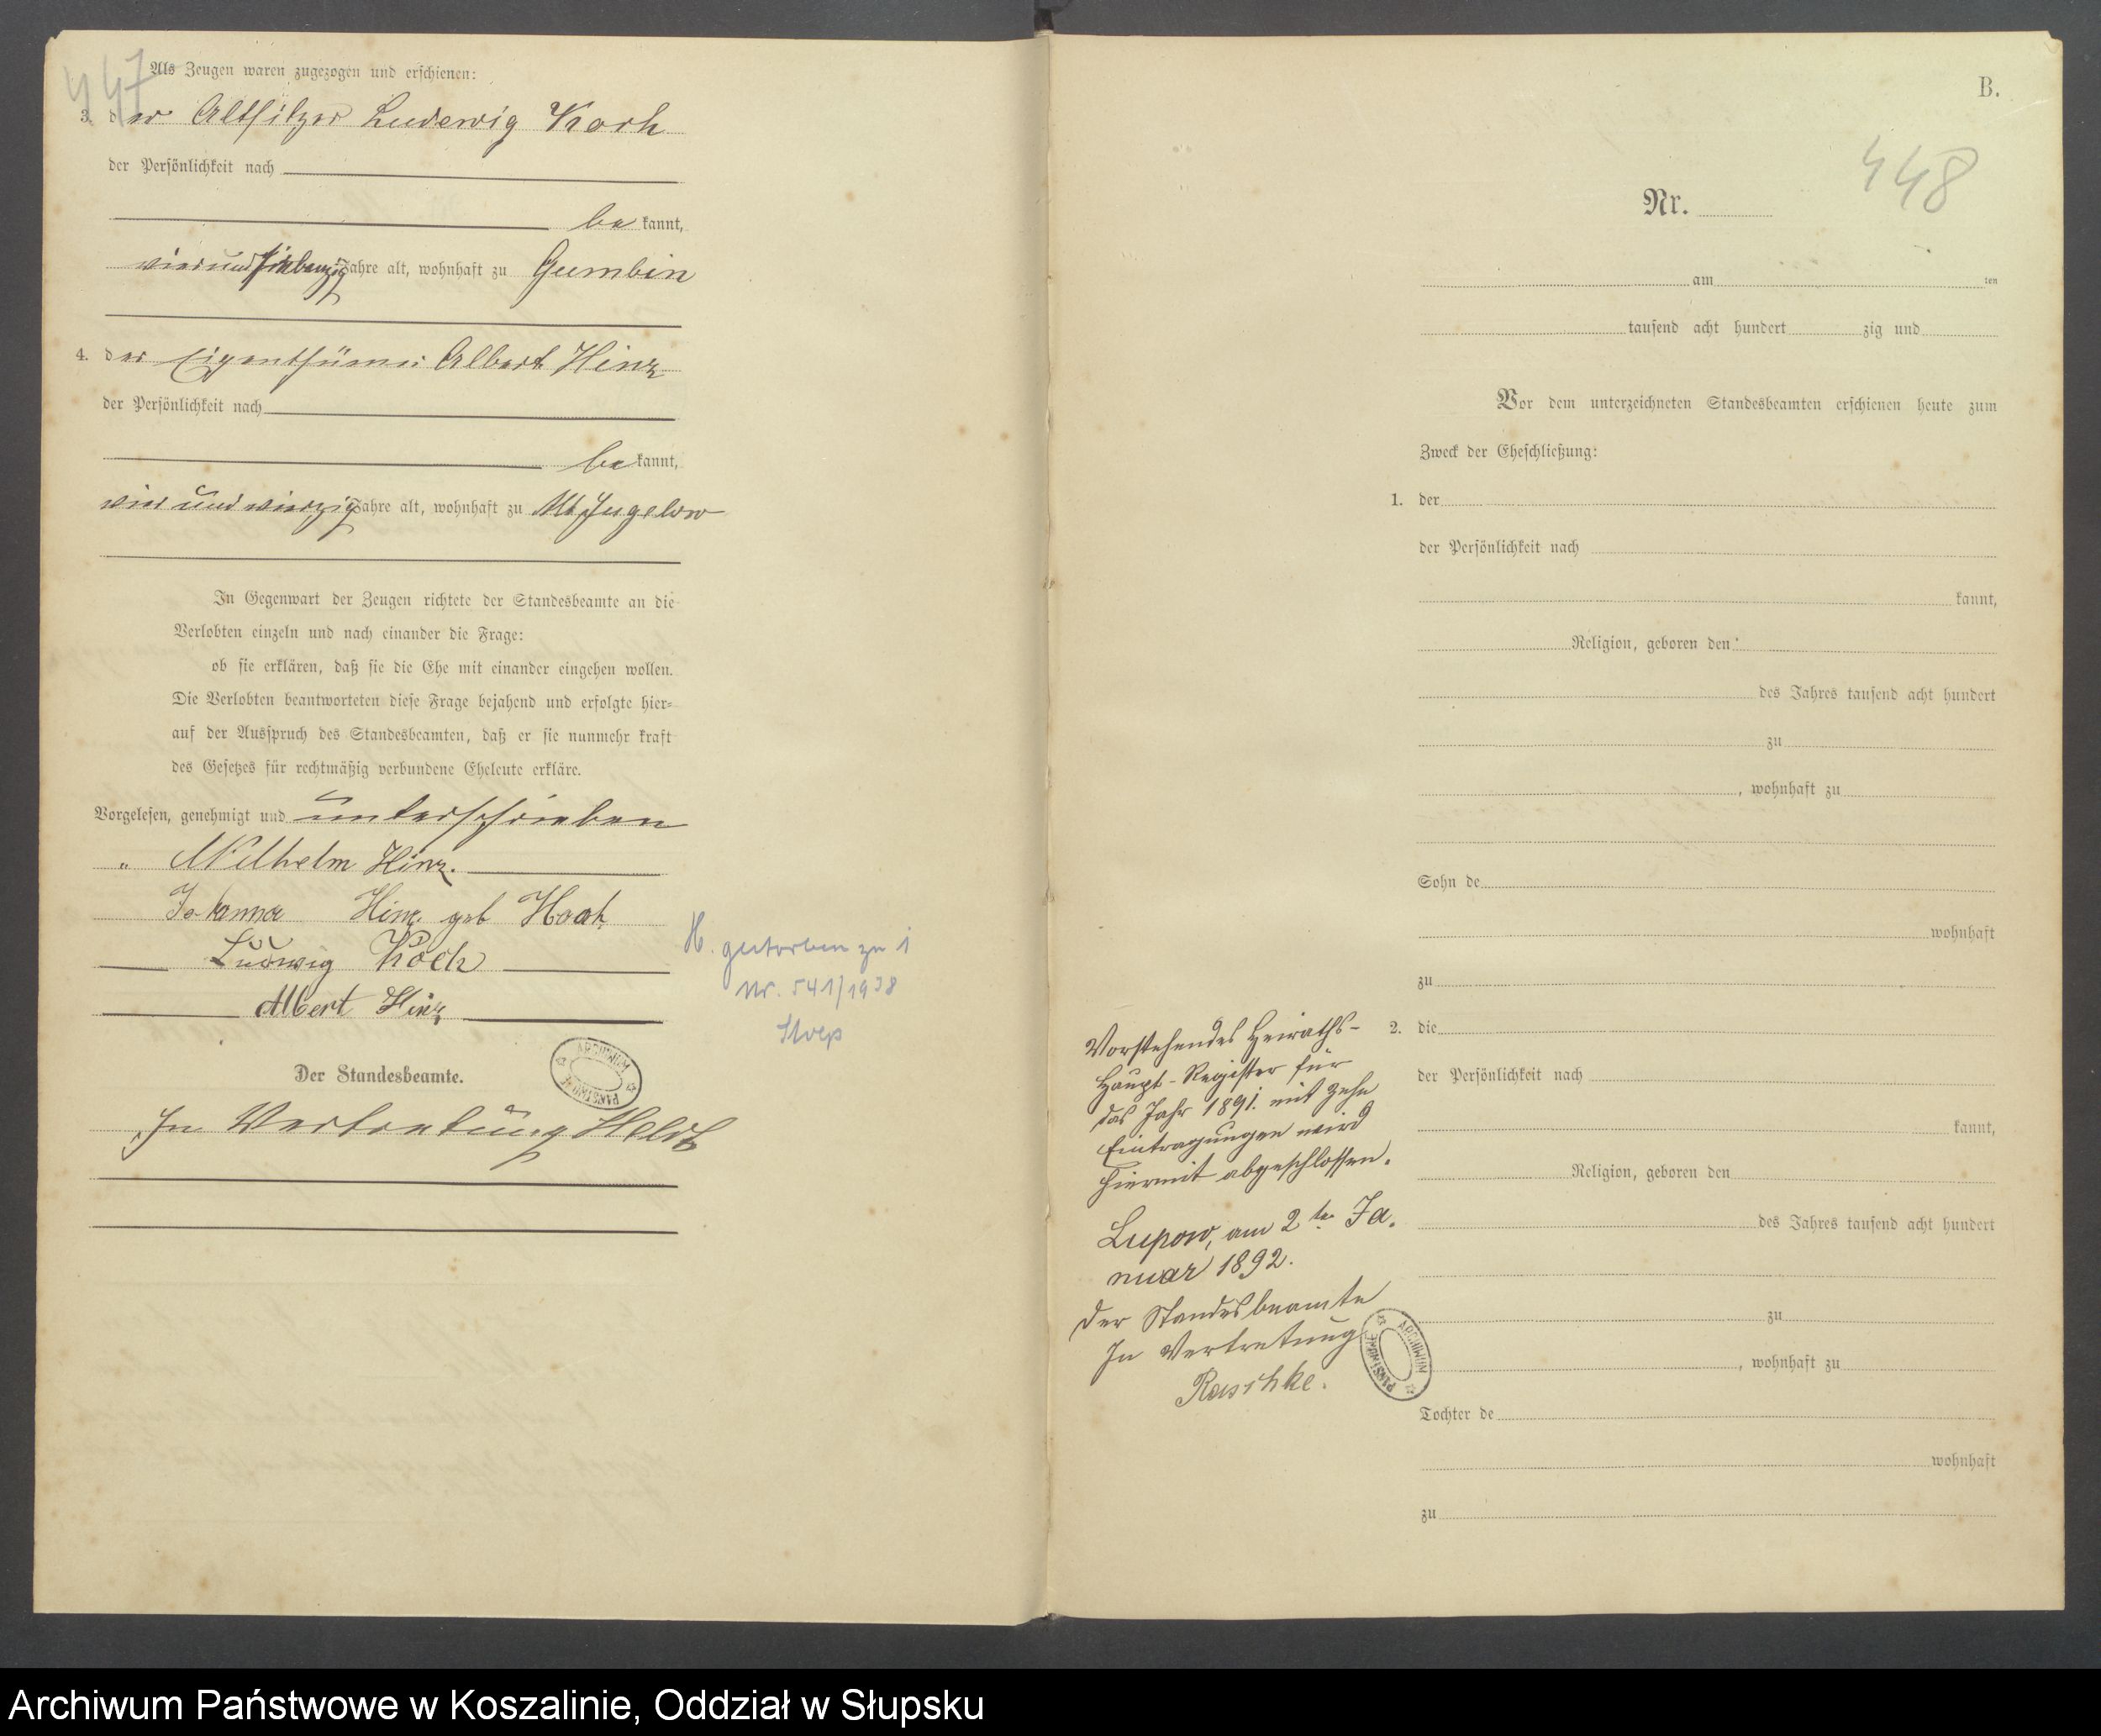 447
Als Zeugen waren zugezogen und erschienen:
3. der Altsitzer Ludewig Koch
der Persönlichkeit nach
bekannt,
vierundsiebenzig Jahre alt, wohnhaft zu Gumbin
4. der Eigenthümer Albert Hinz
der Persönlichkeit nach
bekannt,
vier und vierzig Jahre alt, wohnhaft zu Alt Jugelow
In Gegenwart der Zeugen richtete der Standesbeamte an die
Verlobten einzeln und nach einander die Frage:
ob sie erklären, daß sie die Ehe mit einander eingehen wollen.
Die Verlobten beantworteten diese Frage bejahend und erfolgte hier-
auf der Ausspruch des Standesbeamten, daß er sie nunmehr kraft
des Gesetzes für rechtmäßig verbundene Eheleute erkläre.
Vorgelesen, genehmigt und unterschrieben
Wilhelm Hinz.
Johanna Hinz geb
Ludwig Koch
Albert Hinz
H. gestorben zu
Nr. 541/1938
Stolp
Der Standesbeamte.
ARCHIWUM PAŃSTWOWE
In Vertretung
B.
448
Nr.
am ten
tausend acht hundert zig und
Vor dem unterzeichneten Standesbeamten erschienen heute zum
Zweck der Eheschließung:
1. der
der Persönlichkeit nach
kannt,
Religion, geboren den
des Jahres tausend acht hundert
zu
, wohnhaft zu
Sohn de
wohnhaft
zu
2. die
der Persönlichkeit nach
kannt,
Religion, geboren den
des Jahres tausend acht hundert
zu
, wohnhaft zu
Tochter de
wohnhaft
zu
Vorstehendes Heiraths-
Haupt-Register für
das Jahr 1891. mit zehn
Eintragungen wird
hiermit abgeschlossen.
Lupow, am 2ten Ja-
nuar 1892.
Der Standesbeamte
In Vertretung
Raschke.
ARCHIWUM PAŃSTWOWE
Archiwum Państwowe w Koszalinie, Oddział w Słupsku